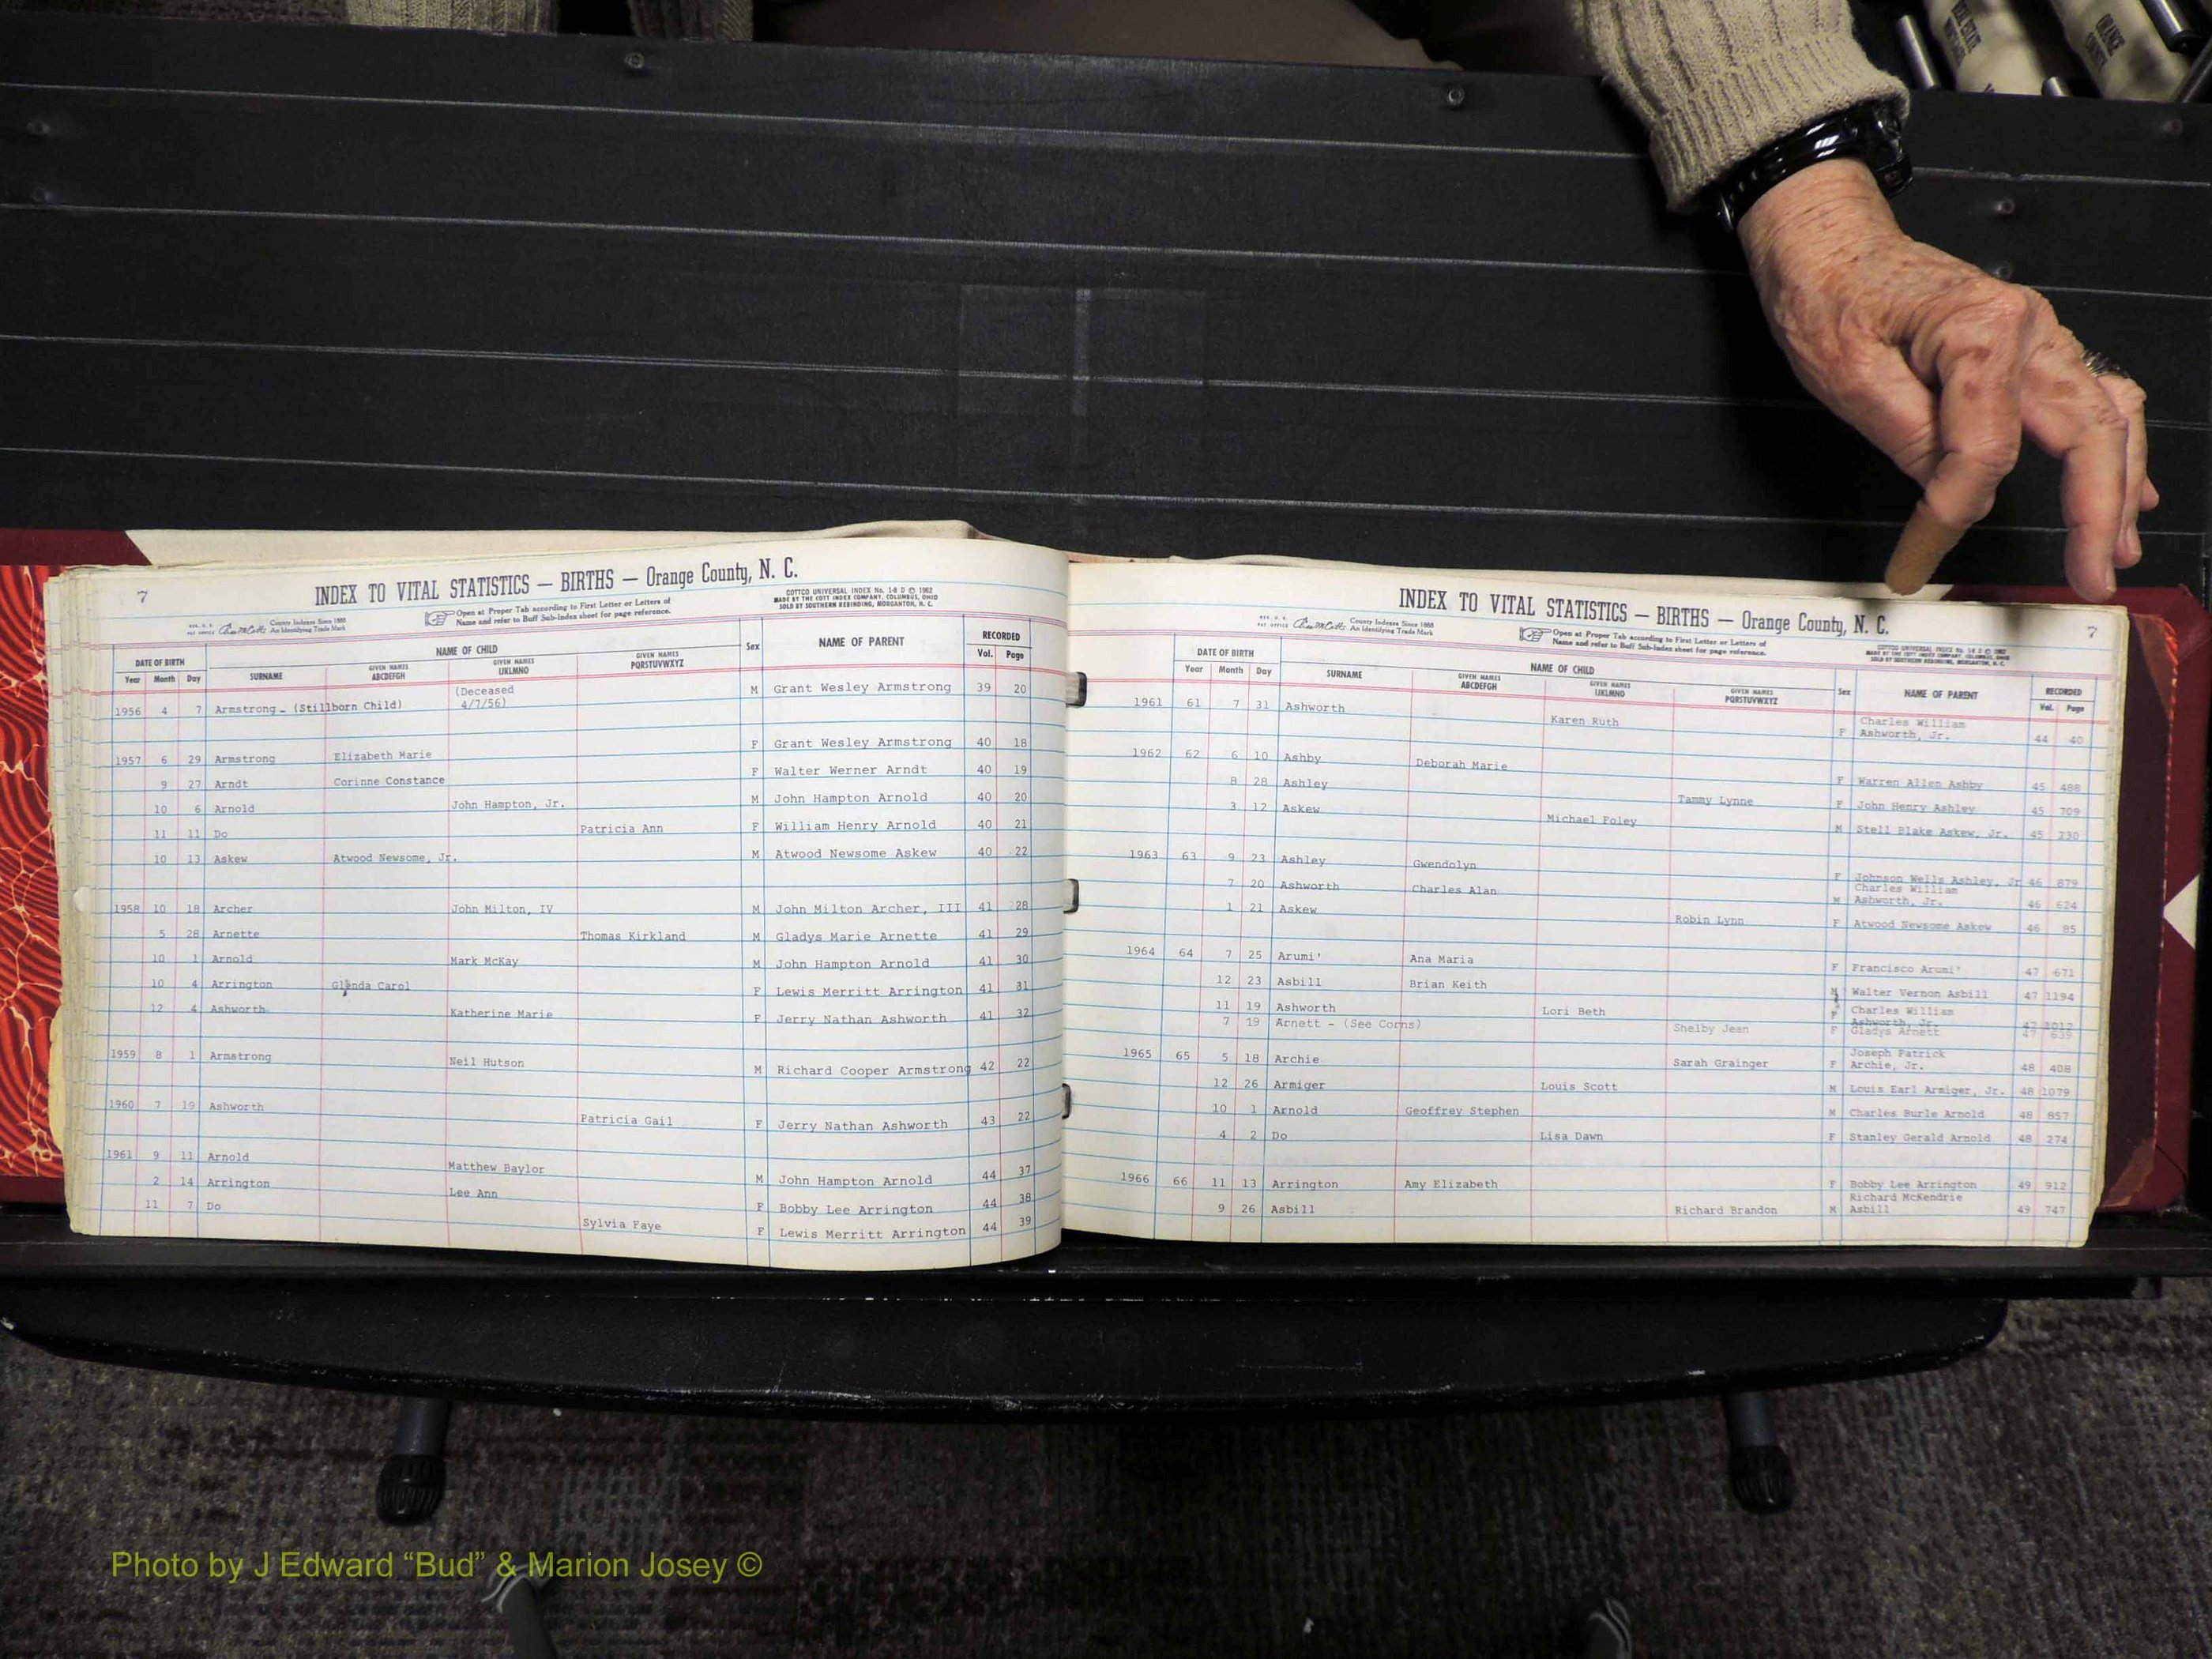 ORANGE
COUNTY
7
INDEX TO VITAL STATISTICS — BIRTHS — Orange County, N. C.
COTTCO UNIVERSAL INDEX No. 1-8 D © 1962
MADE BY THE COTT INDEX COMPANY, COLUMBUS, OHIO
SOLD BY SOUTHERN REBINDING, MORGANTON, N. C.
County Indexes Since 1888
An Identifying Trade Mark
Open at Proper Tab according to First Letter or Letters of
Name and refer to Buff Sub-Index sheet for page reference.
DATE OF BIRTH NAME OF CHILD Sex NAME OF PARENT RECORDED
Year Month Day SURNAME GIVEN NAMES ABCDEFGH GIVEN NAMES IJKLMNO GIVEN NAMES PQRSTUVWXYZ Vol. Page
1956 4 7 Armstrong - (Stillborn Child) (Deceased 4/7/56) M Grant Wesley Armstrong 39 20
1957 6 29 Armstrong Elizabeth Marie F Grant Wesley Armstrong 40 18
9 27 Arndt Corinne Constance F Walter Werner Arndt 40 19
10 6 Arnold John Hampton, Jr. M John Hampton Arnold 40 20
11 11 Do Patricia Ann F William Henry Arnold 40 21
10 13 Askew Atwood Newsome, Jr. M Atwood Newsome Askew 40 22
1958 10 18 Archer John Milton, IV M John Milton Archer, III 41 28
5 28 Arnette Thomas Kirkland M Gladys Marie Arnette 41 29
10 1 Arnold Mark McKay M John Hampton Arnold 41 30
10 4 Arrington Glenda Carol F Lewis Merritt Arrington 41 31
12 4 Ashworth Katherine Marie F Jerry Nathan Ashworth 41 32
1959 8 1 Armstrong Neil Hutson M Richard Cooper Armstrong 42 22
1960 7 19 Ashworth Patricia Gail F Jerry Nathan Ashworth 43 22
1961 9 11 Arnold Matthew Baylor M John Hampton Arnold 44 37
2 14 Arrington Lee Ann F Bobby Lee Arrington 44 38
11 7 Do Sylvia Faye F Lewis Merritt Arrington 44 39
INDEX TO VITAL STATISTICS — BIRTHS — Orange County, N. C.
7
County Indexes Since 1888
An Identifying Trade Mark
Open at Proper Tab according to First Letter or Letters of
Name and refer to Buff Sub-Index sheet for page reference.
COTTCO UNIVERSAL INDEX No. 1-8 D © 1962
MADE BY THE COTT INDEX COMPANY, COLUMBUS, OHIO
SOLD BY SOUTHERN REBINDING, MORGANTON, N. C.
DATE OF BIRTH NAME OF CHILD Sex NAME OF PARENT RECORDED
Year Month Day SURNAME GIVEN NAMES ABCDEFGH GIVEN NAMES IJKLMNO GIVEN NAMES PQRSTUVWXYZ Vol. Page
1961 61 7 31 Ashworth Karen Ruth F Charles William Ashworth, Jr. 44 40
1962 62 6 10 Ashby Deborah Marie F Warren Allen Ashby 45 488
8 28 Ashley Tammy Lynne F John Henry Ashley 45 709
3 12 Askew Michael Foley M Stell Blake Askew, Jr. 45 230
1963 63 9 23 Ashley Gwendolyn F Johnson Wells Ashley, Jr 46 879
7 20 Ashworth Charles Alan M Charles William Ashworth, Jr. 46 624
1 21 Askew Robin Lynn F Atwood Newsome Askew 46 85
1964 64 7 25 Arumi' Ana Maria F Francisco Arumi' 47 671
12 23 Asbill Brian Keith M Walter Vernon Asbill 47 1194
11 19 Ashworth Lori Beth F Charles William Ashworth, Jr. 47 1012
7 19 Arnett - (See Corns) Shelby Jean F Gladys Arnett 47 639
1965 65 5 18 Archie Sarah Grainger F Joseph Patrick Archie, Jr. 48 408
12 26 Armiger Louis Scott M Louis Earl Armiger, Jr. 48 1079
10 1 Arnold Geoffrey Stephen M Charles Burle Arnold 48 857
4 2 Do Lisa Dawn F Stanley Gerald Arnold 48 274
1966 66 11 13 Arrington Amy Elizabeth F Bobby Lee Arrington 49 912
9 26 Asbill Richard Brandon M Richard McKendrie Asbill 49 747
Photo by J Edward “Bud” & Marion Josey ©